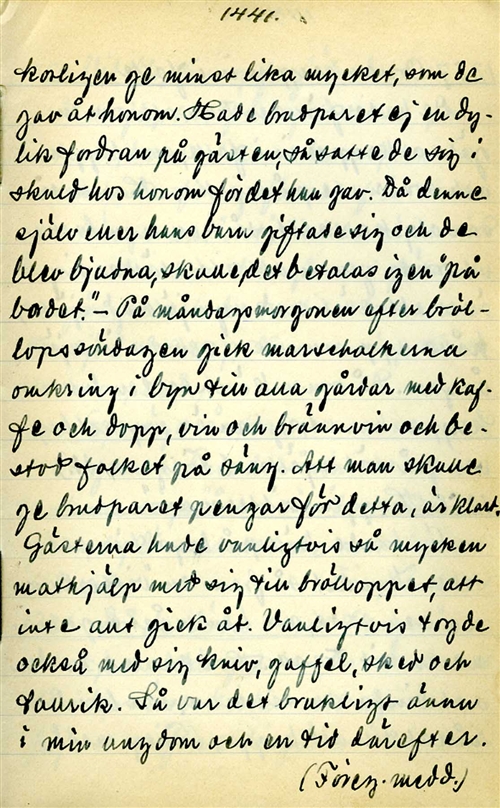 1441.
kosligen ge minst lika mycket, som de
gav åt honom. Hade brudparet ej en dy-
lik fordran på gästen, så satte de sig i
skuld hos honom för det han gav. Då denne
själv eller hans barn giftade sig och de
blev bjudna, skulle det betalas igen "på
bordet." – På måndagsmorgonen efter bröl-
lopssöndagen gick marschalkerna
omkring i byn till alla gårdar med kaf-
fe och dopp, vin och brännvin och be-
stod folket på säng. Att man skulle
ge brudparet pengar för detta, är klart.
Gästerna hade vanligtvis så mycken
mathjälp med sig till bröllopet, att
inte allt gick åt. Vanligtvis togo de
också med sig kniv, gaffel, sked och
tallrik. Så var det brukligt ännu
i min ungdom och en tid därefter.
(Föreg. medd.)